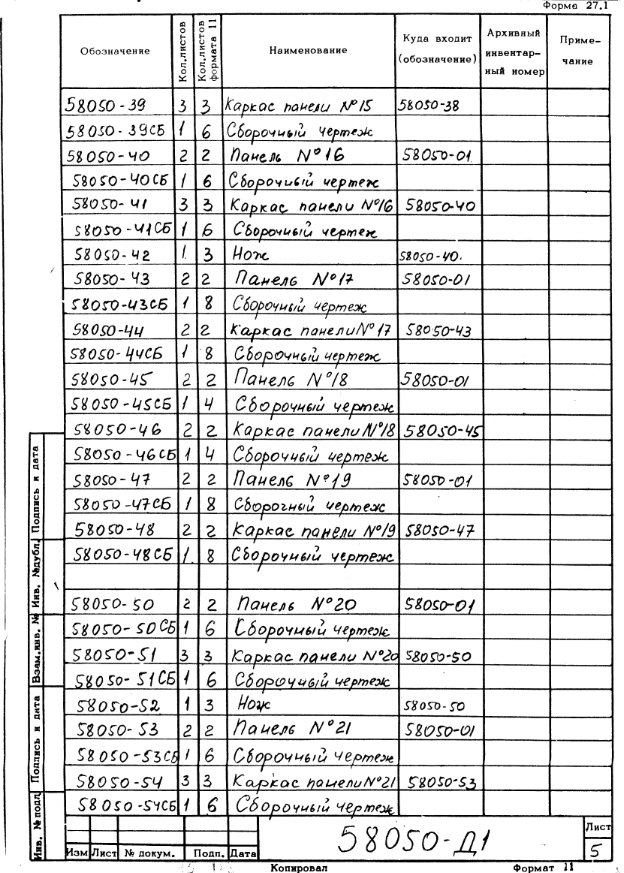 Форма 27.1
Обозначение Кол.листов Кол.листов формата 11 Наименование Куда входит (обозначение) Архивный инвентарный номер Примечание
58050-39 3 3 Каркас панели №15 58050-38
58050-39СБ 1 6 Сборочный чертеж
58050-40 2 2 Панель №16 58050-01
58050-40СБ 1 6 Сборочный чертеж
58050-41 3 3 Каркас панели №16 58050-40
58050-41СБ 1 6 Сборочный чертеж
58050-42 1 3 Нож 58050-40.
58050-43 2 2 Панель №17 58050-01
58050-43СБ 1 8 Сборочный чертеж
58050-44 2 2 Каркас панели №17 58050-43
58050-44СБ 1 8 Сборочный чертеж
58050-45 2 2 Панель №18 58050-01
58050-45СБ 1 4 Сборочный чертеж
58050-46 2 2 Каркас панели №18 58050-45
58050-46СБ 1 4 Сборочный чертеж
58050-47 2 2 Панель №19 58050-01
58050-47СБ 1 8 Сборочный чертеж
58050-48 2 2 Каркас панели №19 58050-47
58050-48СБ 1 8 Сборочный чертеж
58050-50 2 2 Панель №20 58050-01
58050-50СБ 1 6 Сборочный чертеж
58050-51 3 3 Каркас панели №20 58050-50
58050-51СБ 1 6 Сборочный чертеж
58050-52 1 3 Нож 58050-50
58050-53 2 2 Панель №21 58050-01
58050-53СБ 1 6 Сборочный чертеж
58050-54 3 3 Каркас панели №21 58050-53
58050-54СБ 1 6 Сборочный чертеж
Инв. № подл. Подпись и дата Взам.инв. № Инв. №дубл. Подпись и дата
58050-Д1
Лист
5
Изм Лист № докум. Подп. Дата
Копировал Формат 11